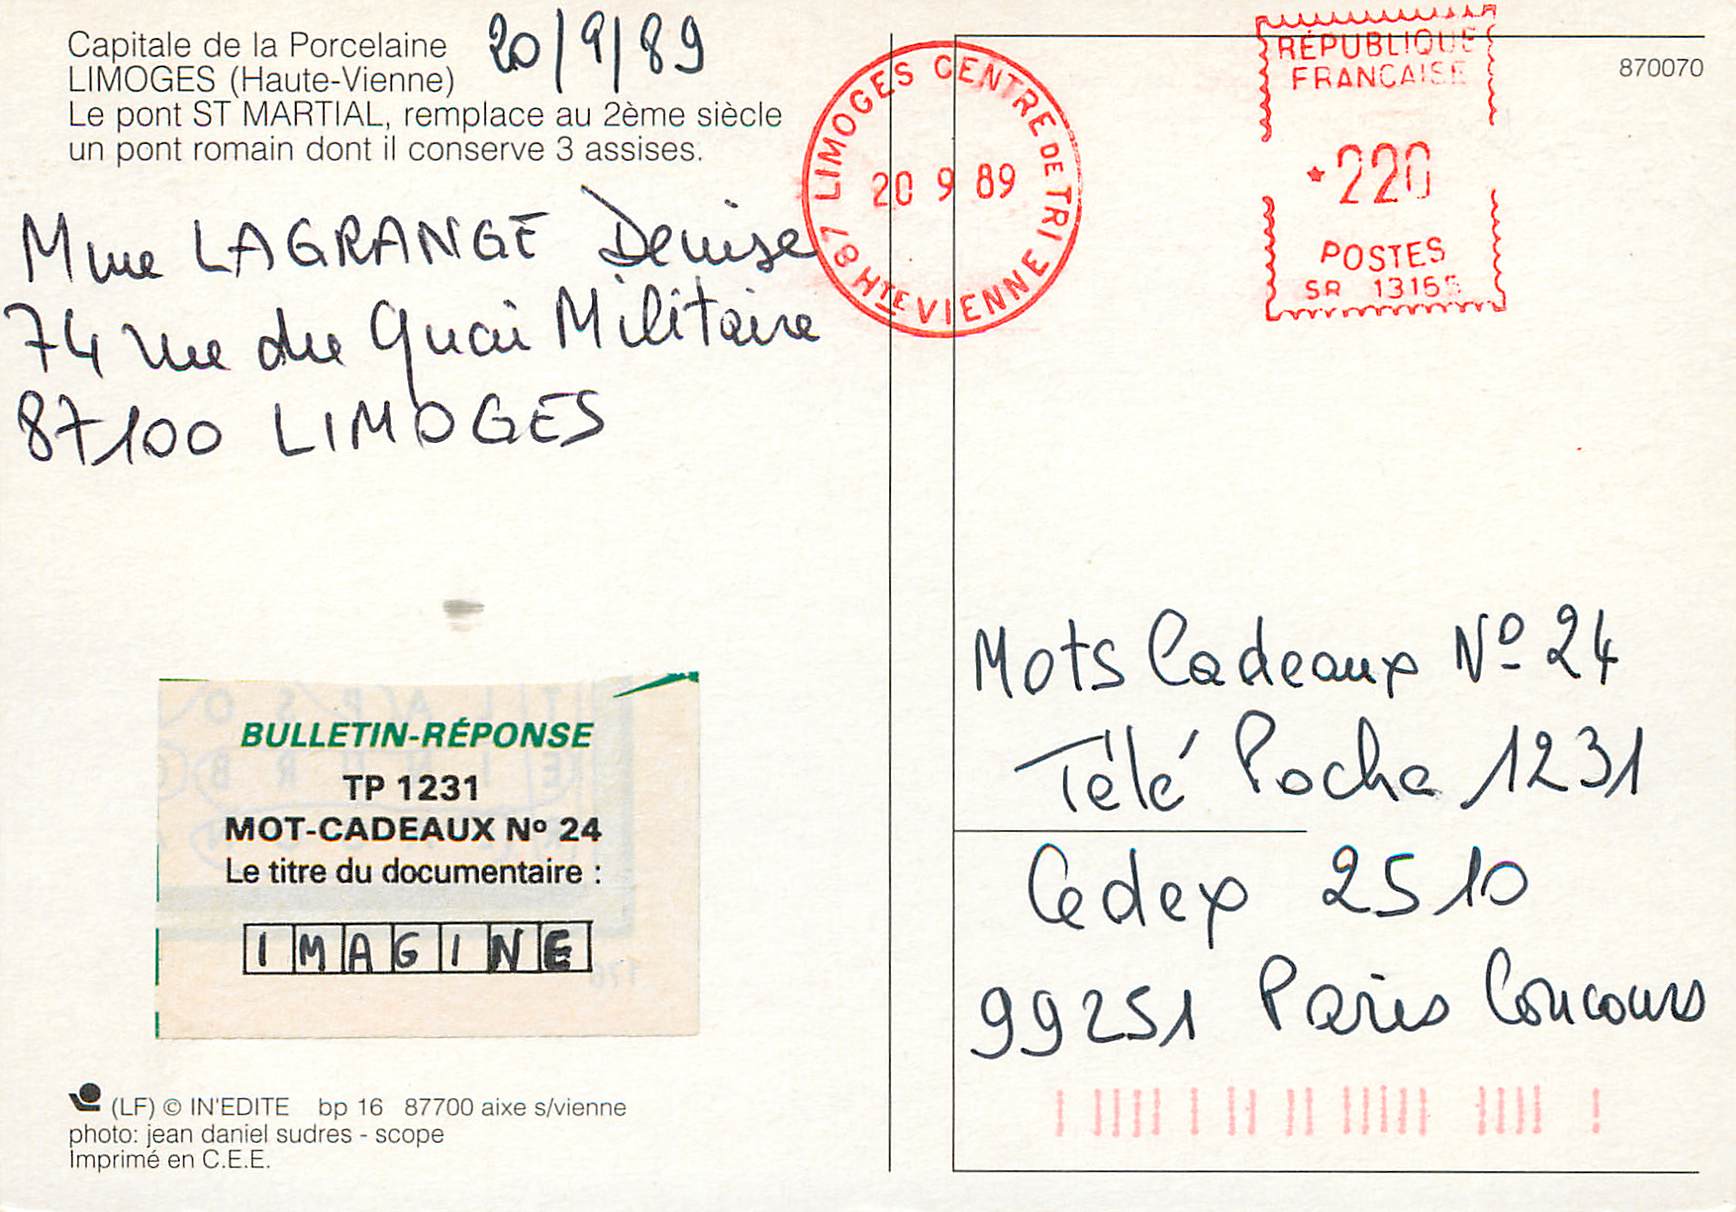 Capitale de la Porcelaine
LIMOGES (Haute-Vienne)
Le pont ST MARTIAL, remplace au 2ème siècle
un pont romain dont il conserve 3 assises.
20/9/89
Mme LAGRANGE Denise
74 rue du Quai Militaire
87100 LIMOGES
BULLETIN-RÉPONSE
TP 1231
MOT-CADEAUX Nº 24
Le titre du documentaire :
IMAGINE
(LF) © IN'EDITE bp 16 87700 aixe s/vienne
photo: jean daniel sudres - scope
Imprimé en C.E.E.
LIMOGES CENTRE DE TRI
20 9 89
87 HTE VIENNE
RÉPUBLIQUE
FRANCAISE
*220
POSTES
SR 13165
870070
Mots Cadeaux Nº 24
Télé Poche 1231
Cedex 2510
99251 Paris Concours